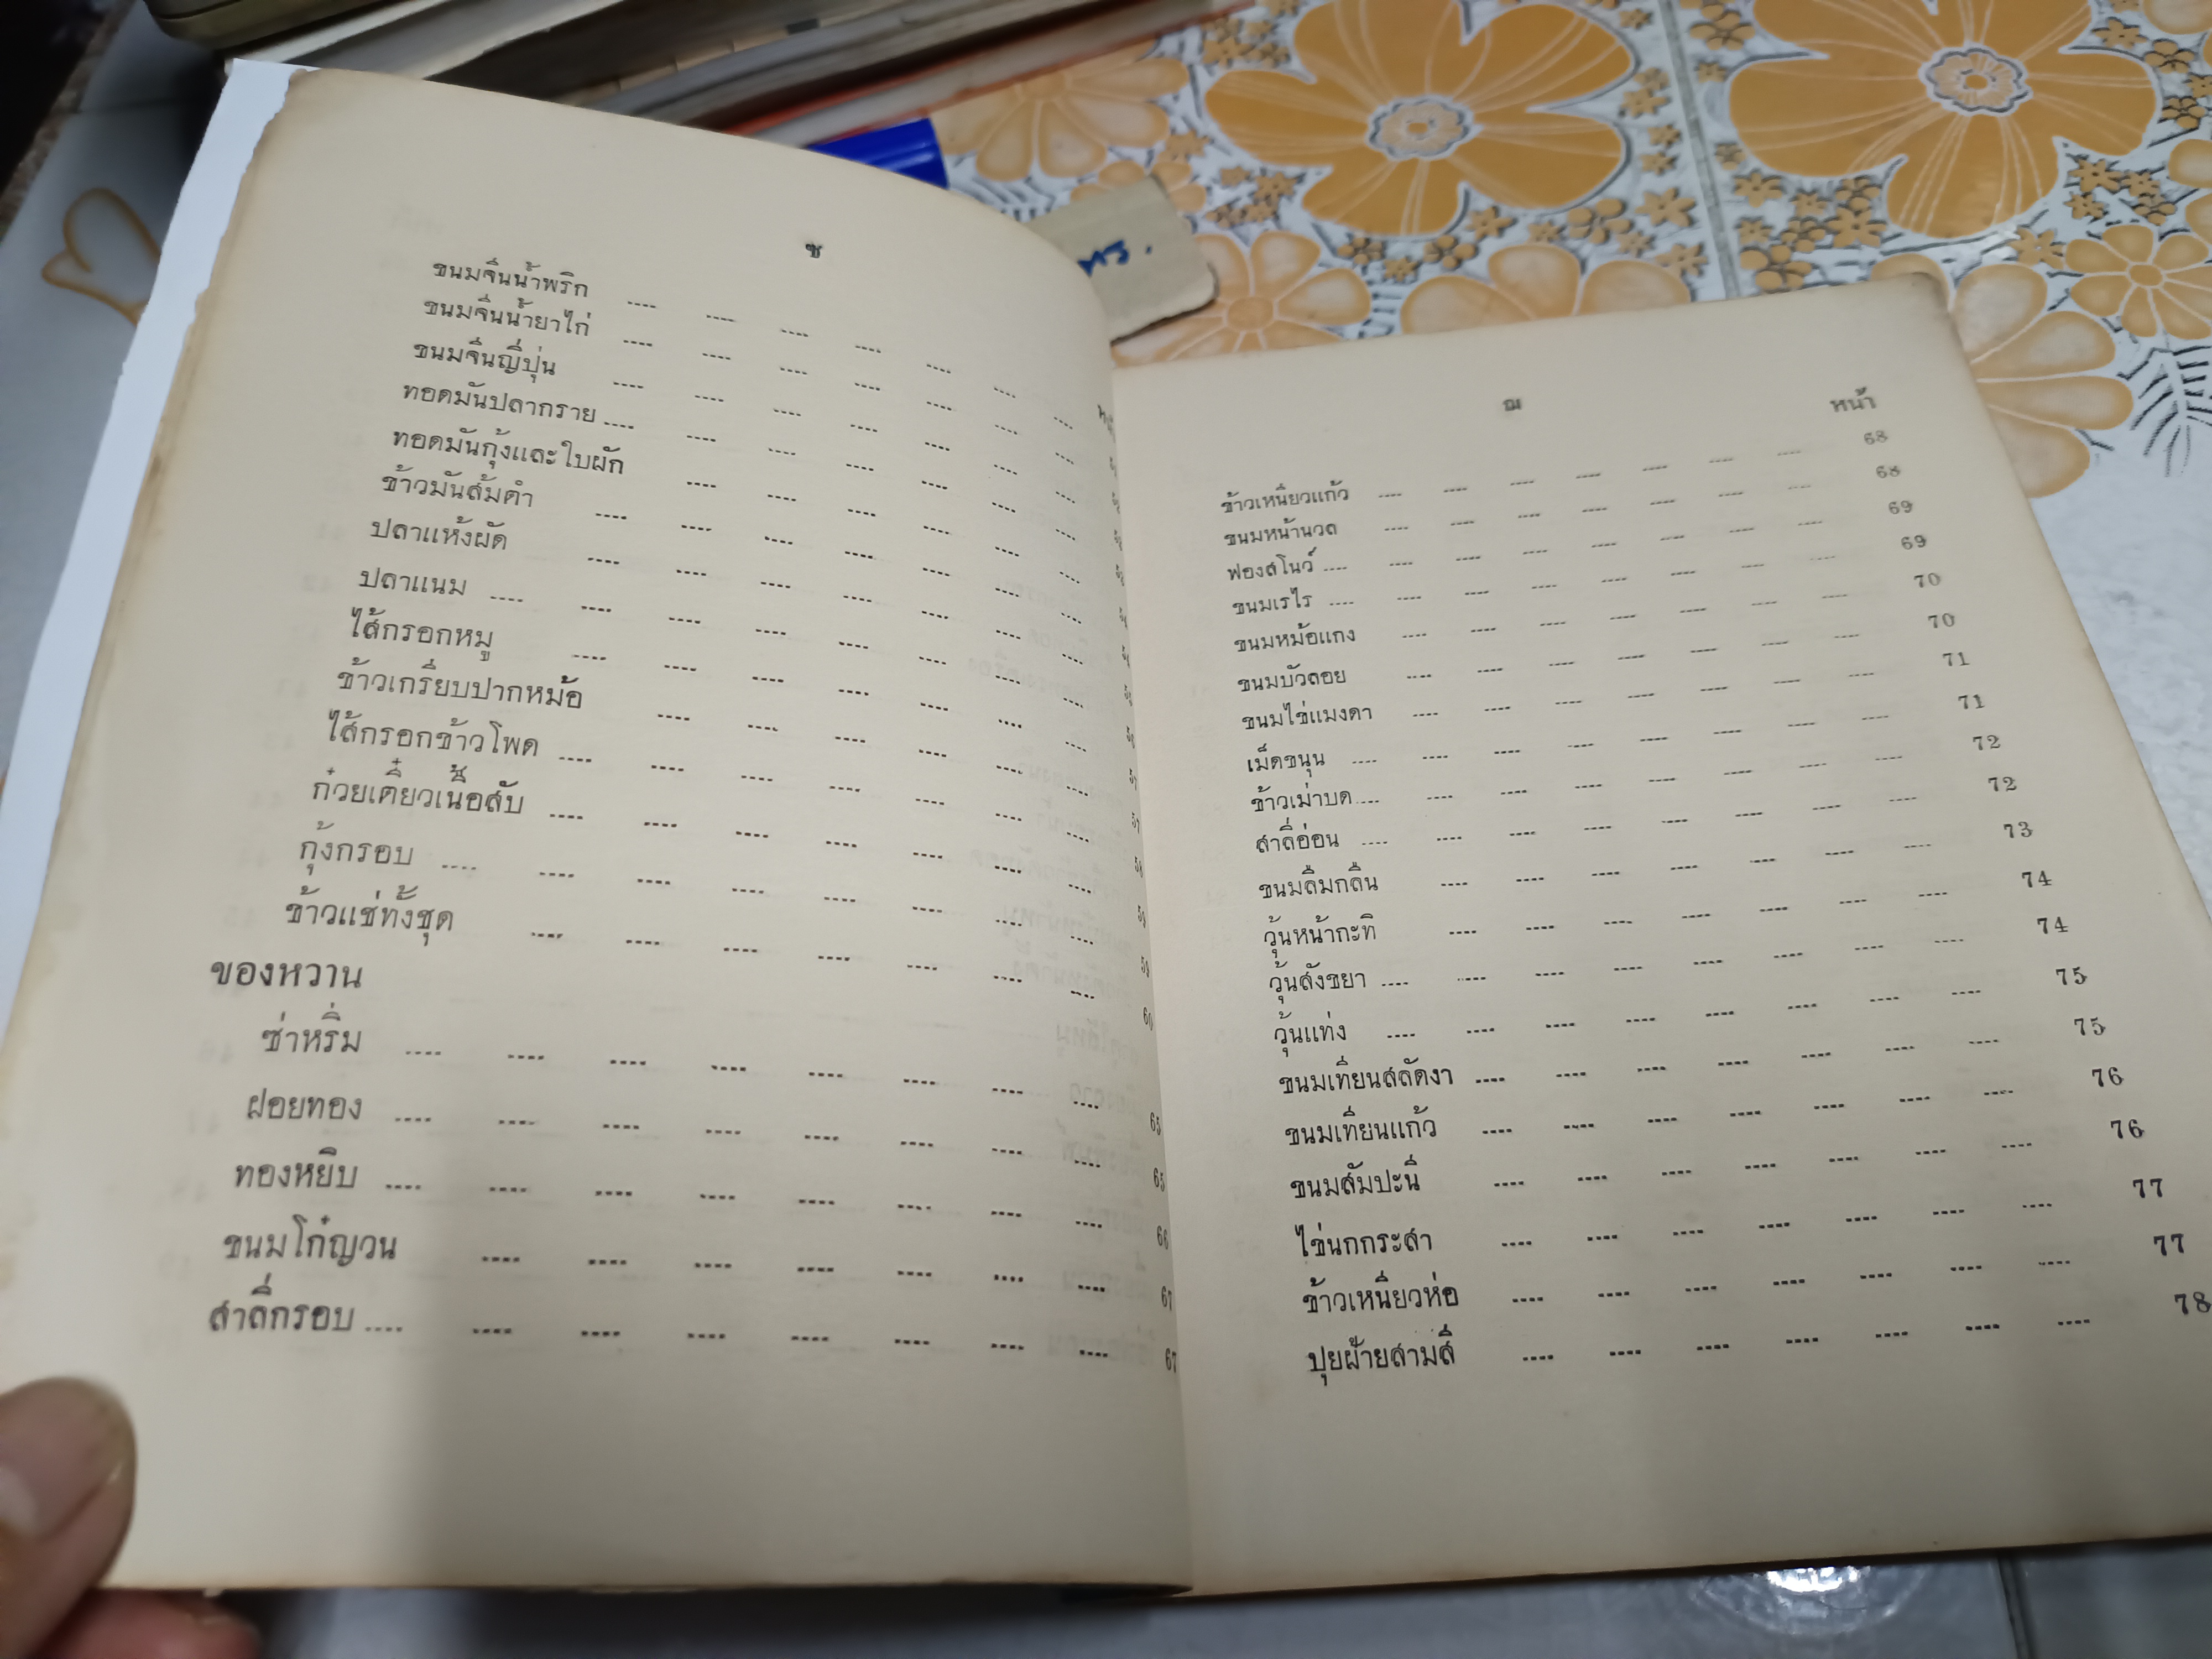 ซ
ขนมจีนน้ำพริก .... .... .... .... .... .... ....
ขนมจีนน้ำยาไก่ .... .... .... .... .... .... ....
ขนมจีนญี่ปุ่น .... .... .... .... .... .... ....
ทอดมันปลากราย .... .... .... .... .... .... ....
ทอดมันกุ้งและใบผัก .... .... .... .... .... ....
ข้าวมันส้มตำ .... .... .... .... .... .... ....
ปลาแห้งผัด .... .... .... .... .... .... ....
ปลาแนม .... .... .... .... .... .... .... ....
ไส้กรอกหมู .... .... .... .... .... .... .... 57
ข้าวเกรียบปากหม้อ .... .... .... .... .... .... 57
ไส้กรอกข้าวโพด .... .... .... .... .... .... .... 58
ก๋วยเตี๋ยวเนื้อสับ .... .... .... .... .... .... .... 59
กุ้งกรอบ .... .... .... .... .... .... .... .... 59
ข้าวแช่ทั้งชุด .... .... .... .... .... .... .... 60
ของหวาน
ซ่าหริ่ม .... .... .... .... .... .... .... .... 65
ฝอยทอง .... .... .... .... .... .... .... .... 65
ทองหยิบ .... .... .... .... .... .... .... .... 66
ขนมโก๋ญวน .... .... .... .... .... .... .... 67
สาลี่กรอบ .... .... .... .... .... .... .... .... 67
ฌ
หน้า
ข้าวเหนียวแก้ว .... .... .... .... .... .... .... 68
ขนมหน้านวล .... .... .... .... .... .... .... 68
ฟองสโนว์ .... .... .... .... .... .... .... .... 69
ขนมเรไร .... .... .... .... .... .... .... .... 69
ขนมหม้อแกง .... .... .... .... .... .... .... 70
ขนมบัวลอย .... .... .... .... .... .... .... 70
ขนมไข่แมงดา .... .... .... .... .... .... .... 71
เม็ดขนุน .... .... .... .... .... .... .... .... 71
ข้าวเม่าบด .... .... .... .... .... .... .... .... 72
สาลี่อ่อน .... .... .... .... .... .... .... .... 72
ขนมลืมกลืน .... .... .... .... .... .... .... 73
วุ้นหน้ากะทิ .... .... .... .... .... .... .... 74
วุ้นสังขยา .... .... .... .... .... .... .... .... 74
วุ้นแท่ง .... .... .... .... .... .... .... .... 75
ขนมเทียนสลัดงา .... .... .... .... .... .... .... 75
ขนมเทียนแก้ว .... .... .... .... .... .... .... 76
ขนมสัมปะนี .... .... .... .... .... .... .... 76
ไข่นกกระสา .... .... .... .... .... .... .... 77
ข้าวเหนียวห่อ .... .... .... .... .... .... .... 77
ปุยฝ้ายสามสี .... .... .... .... .... .... .... 78